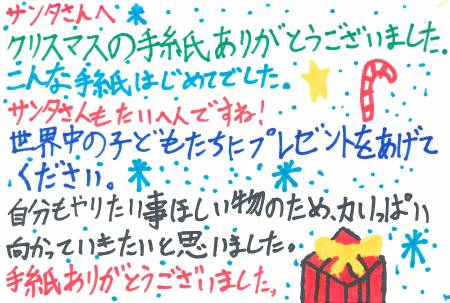 サンタさんへ
クリスマスの手紙ありがとうございました。
こんな手紙はじめてでした。
サンタさんもたいへんですね!
世界中の子どもたちにプレゼントをあげて
ください。
自分もやりたい事ほしい物のため、力いっぱい
向かっていきたいと思いました。
手紙ありがとうございました。